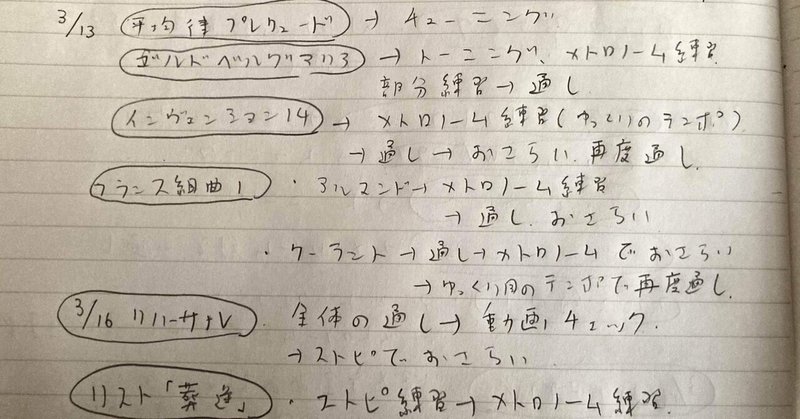 3/13 平均律プレリュード → チューニング
ゴルドベルグアリア → トーニング、メトロノーム練習
部分練習 → 通し
インヴェンション14 → メトロノーム練習(ゆっくりのテンポ)
→ 通し → おさらい、再度通し
フランス組曲1 ・アルマンド → メトロノーム練習
→ 通し、おさらい
・クーラント → 通し → メトロノームでおさらい
→ ゆっくり目のテンポで再度通し
3/16 リハーサル ・全体の通し → 動画チェック
→ ストピでおさらい
リスト「葬送」 ・ストピ練習 → メトロノーム練習